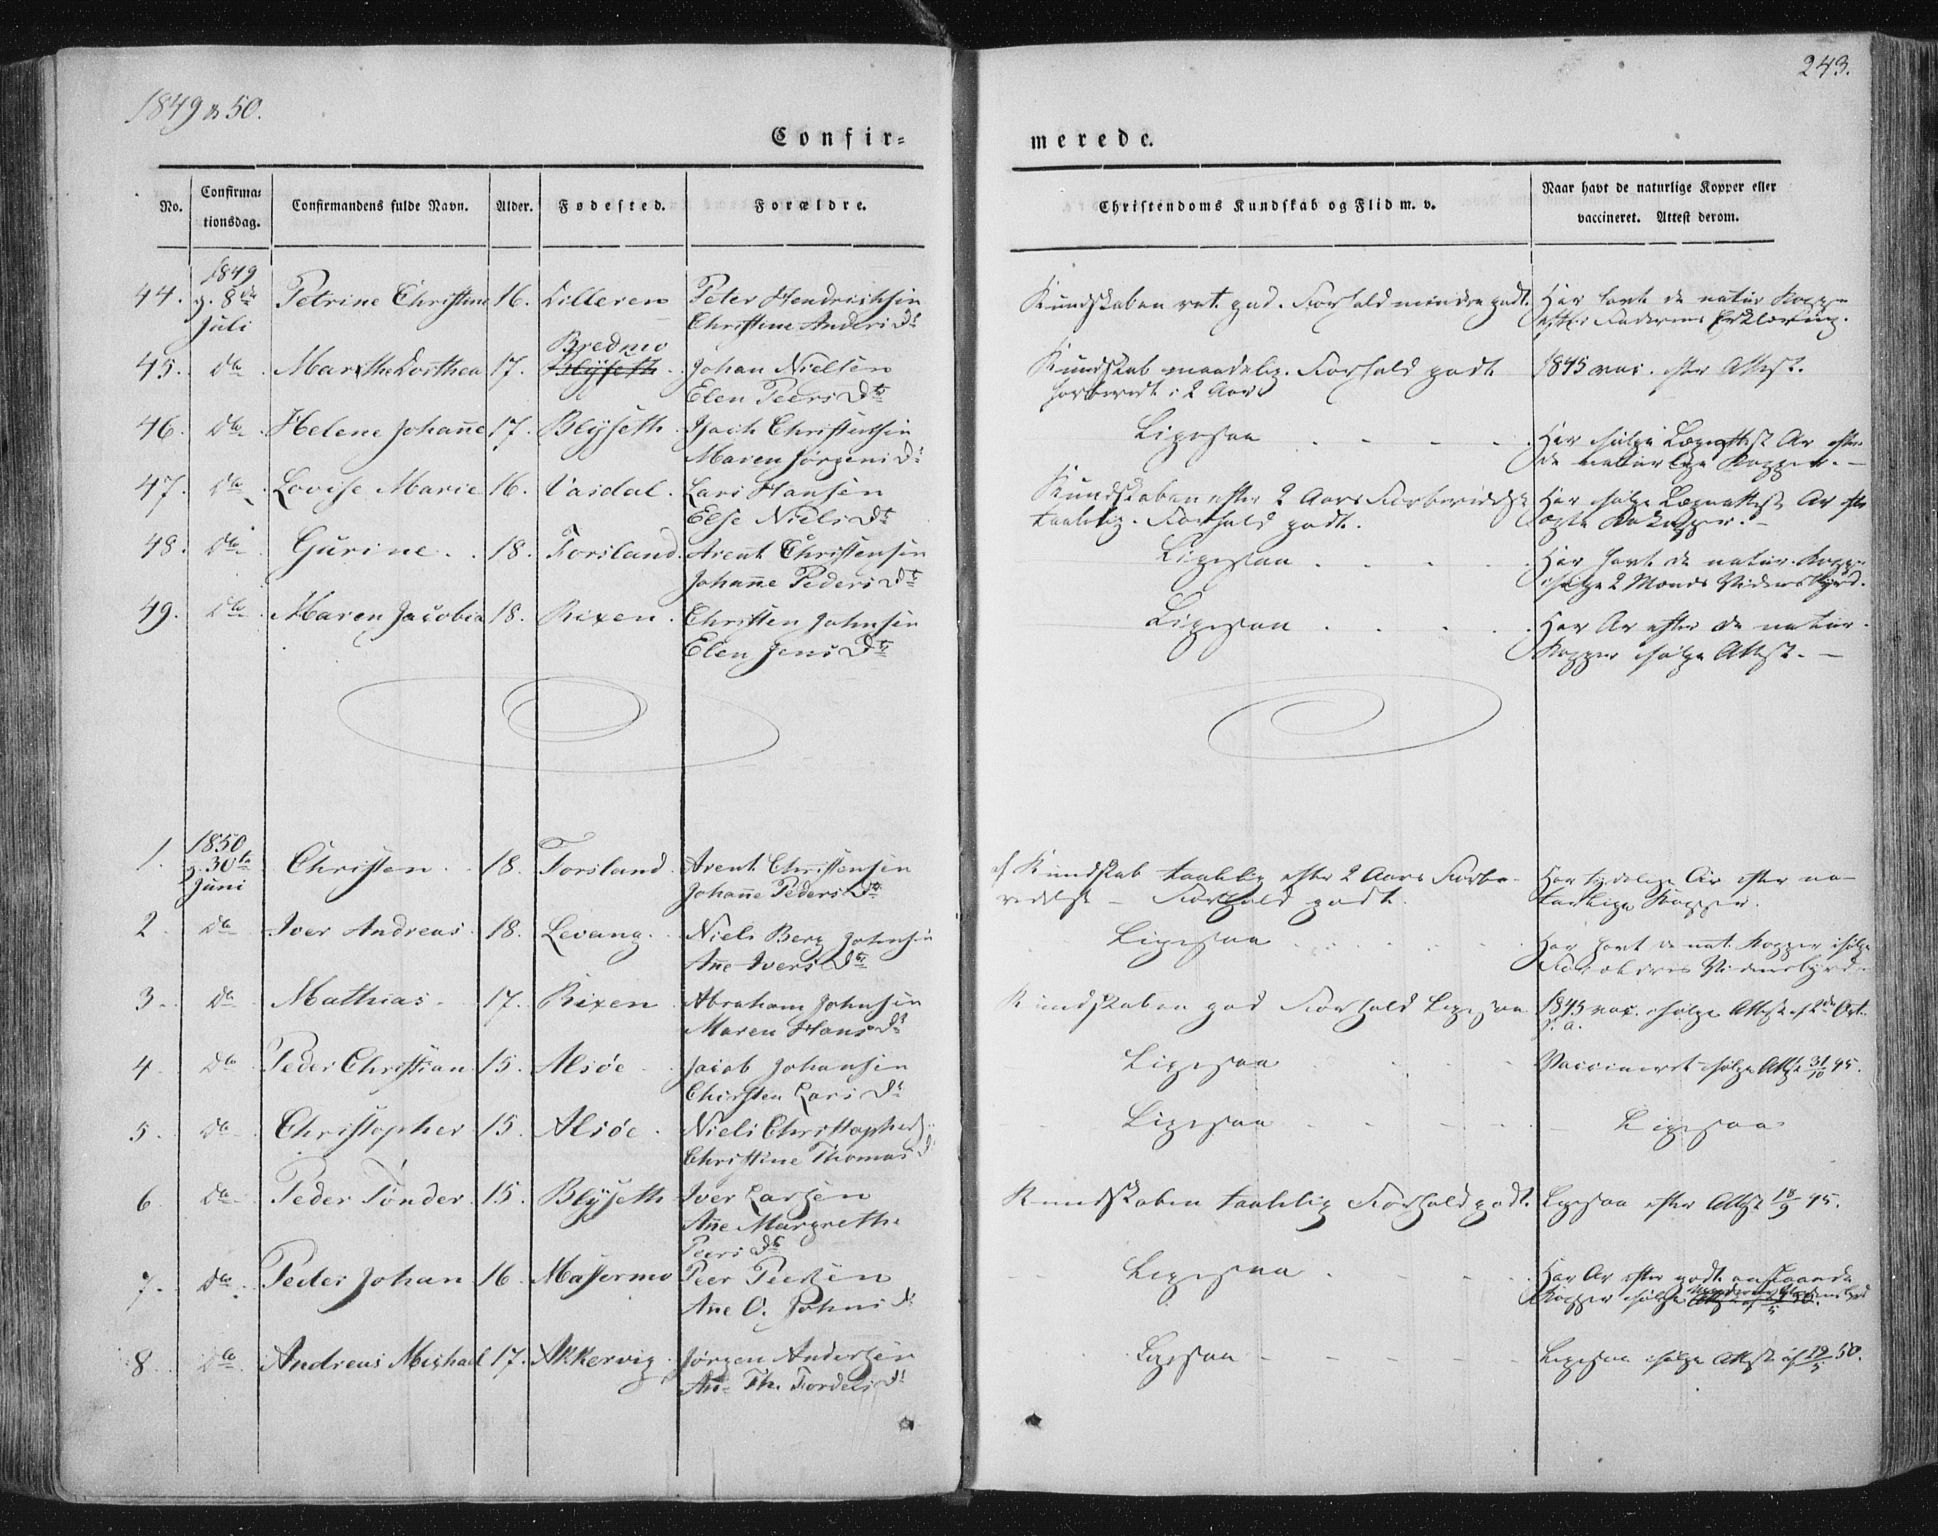 1849 & 50.
243.
Confir=
merede.
No.
Confirma=
tionsdag.
Confirmandens fulde Navn.
Alder.
Fødested.
Forældre.
Christendoms Kundskab og Flid m. v.
Naar havt de naturlige Kopper eller
vaccineret. Attest derom.
1849
44. 8de Petrine Christine 16. Lilleren Peter Hendrichsen
Juli Christine Anders Dr
Kundskaben god. Forhold mindre godt.
Har havt de natur Kopper
efter Faderens Erklæring.
Bredmo
45. Do Marithe Dorthea 17. Blyseth Johan Nielsen
Elen Peers Dr
Kundskab maadelig. Forhold godt
forberedt i 2 Aar
1845 vac. efter Attest.
46. Do Helene Johañe 17. Blyseth Isach Christensen
Maren Jørgens Dr
Ligesaa
Har ifølge Lægeattest Ar efter
de naturlige Kopper.
47. Do Lovise Marie 16. Vasdal. Lars Hansen
Else Niels Dr
Kundskaben efter 2 Aars Forberedelse
taalelig. Forhold godt.
Har ifølge Lægeattest Ar efter
ægte Kokopper.
48. Do Gurine. 18. Forsland. Arent Christensen
Johañe Peders Dr
Ligesaa
Har havt de natur. Kopper
ifølge 2 Mænds Vidnesbyrd.
49. Do Maren Jacobia 18. Rixen. Christen Johnsen
Elen Jens Dr
Ligesaa
Har Ar efter de natur.
Kopper ifølge Attest.
1850
1. 30te Christen 18. Forsland Arent Christensen
Juni Johañe Peders Dr
Kundskab taalelig efter 2 Aars Forbe-
redelse - Forhold godt.
Har tydelige Ar efter na-
turlige Kopper.
2 Do Iver Andreas 18. Levang. Niels Berg Johnsen
Añe Ivers Dr
Ligesaa
Har havt de nat. Kopper ifølge
Forældres Vidnesbyrd.
3. Do Mathias 17. Rixen Abraham Johnsen
Maren Hans Dr
Kundskaben god Forhold Ligesaa
1845 vac. ifølge Attest af 2de Oct.
s. a.
4 Do Peder Christian 15. Alsöe Jacob Johansen
Chirsten Lars Dr
Ligesaa
Vaccineret ifølge Attest 31/10 45.
5. Do Christopher 15. Alsöe. Niels Christophers
Christine Thomas D
Ligesaa
Ligesaa
6 Do Peder Tönder. 15. Blyseth Iver Larsen
Añe Margrethe
Peers Dr
Kundskaben taalelig Forhold godt.
Ligesaa efter Attest 18/9 45.
7. Do Peder Johan 16. Massermo Peer Peersen
Añe O. Johns Dr
Ligesaa
Har Ar efter godt
Kopper ifølge
8 Do Andreas Michael 17. Akkervig. Jørgen Andersen
Añe Th. Torders Dr
Ligesaa
Ligesaa ifølge Attest af 19/5 50.